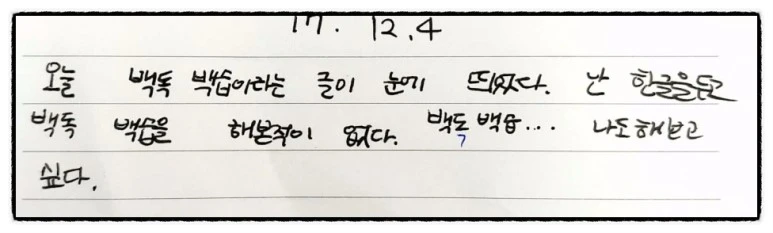 17. 12.4
오늘 백독 백습이라는 글이 눈에 띄었다. 난 한글을두고
백독 백습을 해본적이 없다. 백독 백습... 나도해보고
싶다.